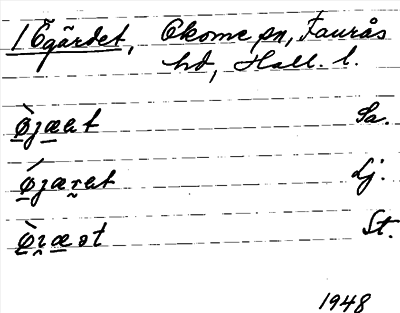 1 Ögärdet, Okome sn, Faurås
hd, Hall. l.
ø̀jæət Sa.
ǿjærət Lj.
ø̀ɪæət St.
1948